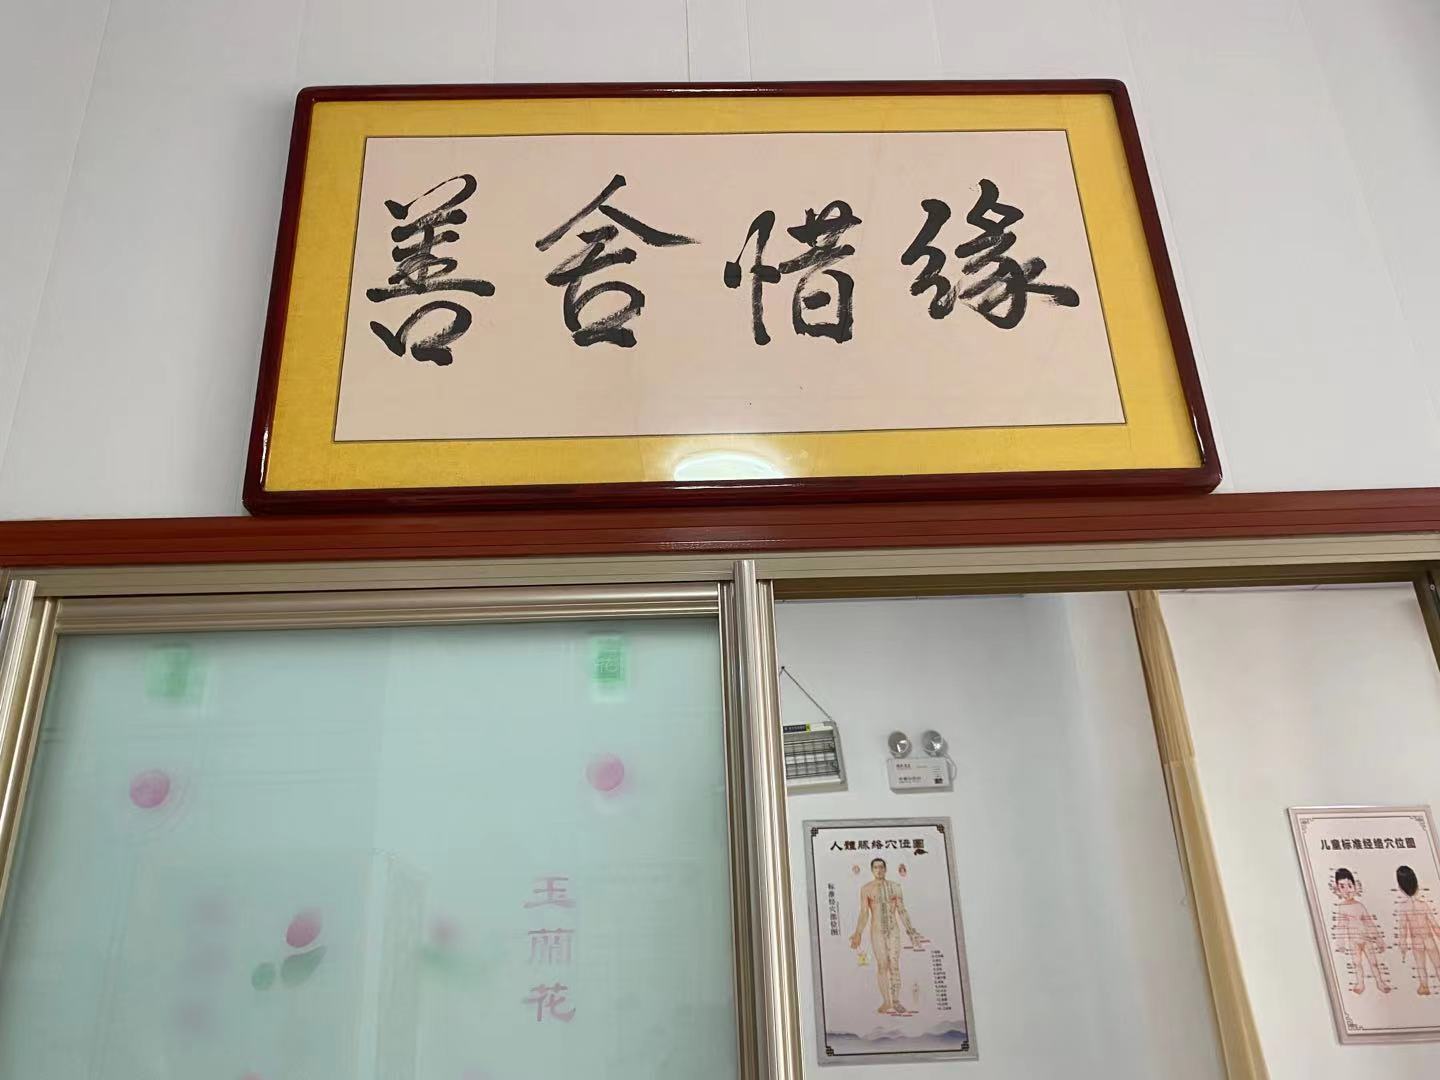 善舍惜缘
玉蘭花
人體脈络穴位圖
标准经穴部位图
儿童标准经络穴位图